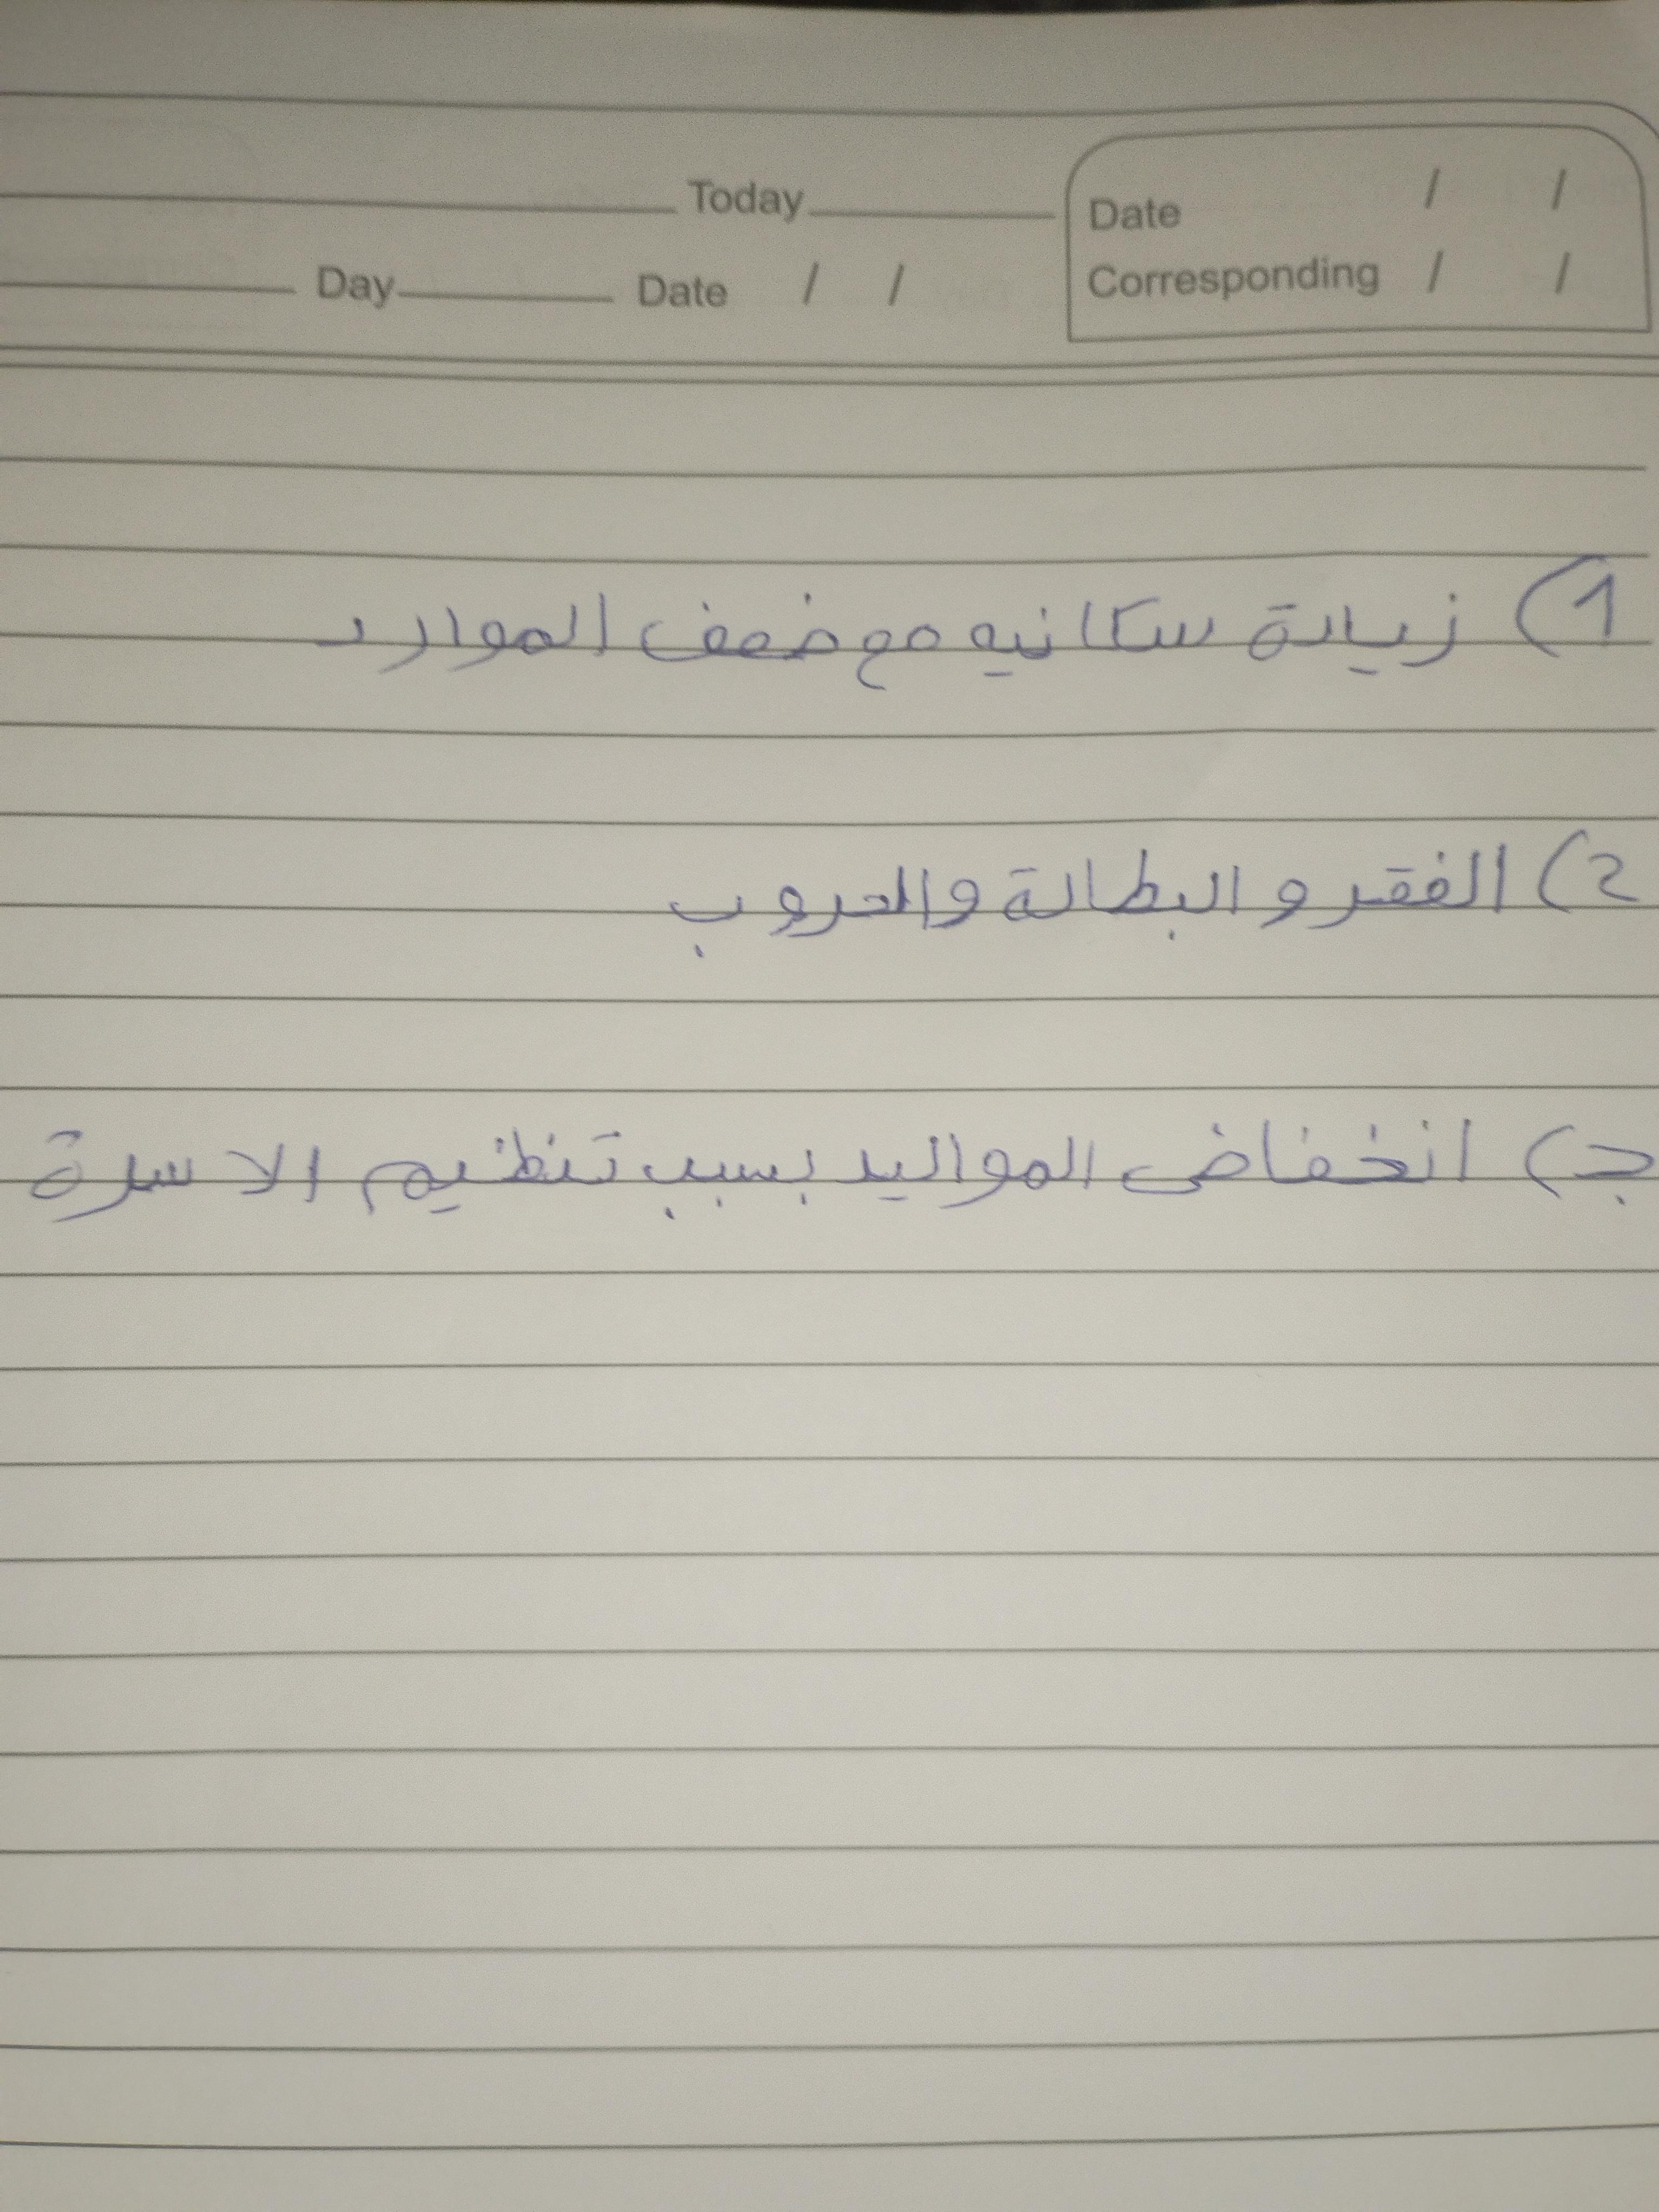 Today Date / /
Day Date / / Corresponding / /
1) زيادة سكانيه مع ضعف الموارد
2) الفقر و البطالة والحروب
ج) انخفاض المواليد بسبب تنظيم الاسرة